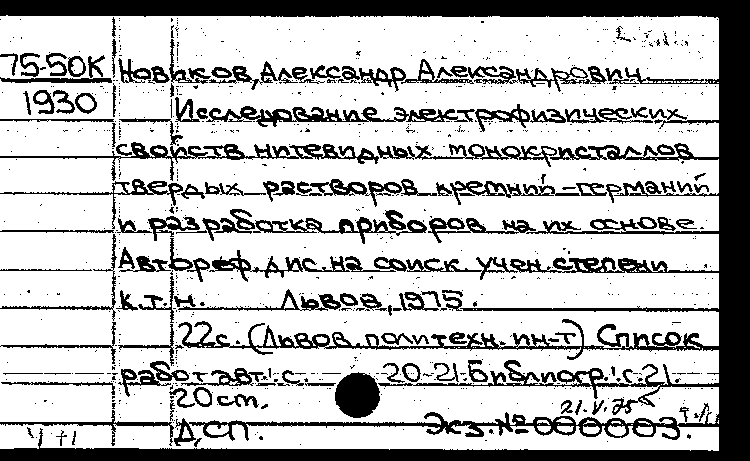 75-50К Новиков, Александр Александрович.
1930 Исследование электрофизических
свойств нитевидных монокристаллов
твердых растворов кремний-германий
и разработка приборов на их основе
Автореф. дис. на соиск. учен. степени
к.т.н. Львов, 1975.
22с. (Львов. политехн. ин-т) Список
работ авт.: с. 20-21. Библиогр.: с. 21.
20 cm.
21.V.75
ДСП. Экз. № 000003.